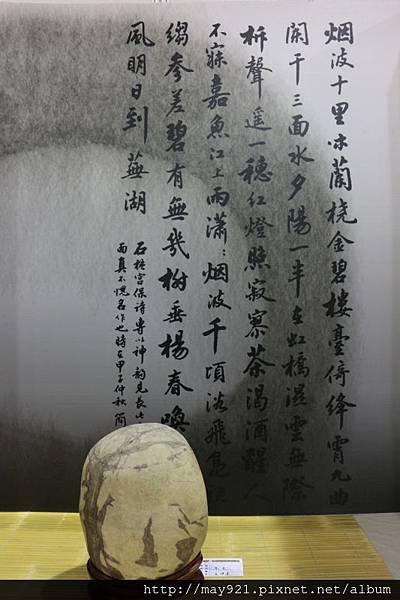 烟波十里冰蘭橈金碧樓臺倚絳霄九曲
闌干三面水夕陽一半在虹橋湿雲無際
柝聲遙一穗紅燈照寂寥茶渴酒醒人
不寐嘉魚江上雨瀟:烟波千頃淡飛
縐參差碧有無幾樹垂楊春喚
風明日到蕪湖
石樵宮保詩專以神韵見長
而真不愧名作也時在甲子仲秋簡
http://may921.pixnet.net/album